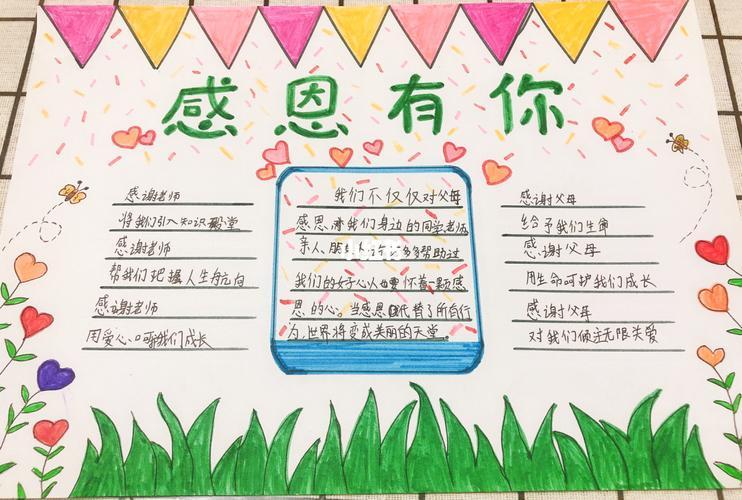 感恩有你
感谢老师
将我们引入知识殿堂
感谢老师
帮我们把握人生方向
感谢老师
用爱心呵我们成长
我们不仅仅对父母
感恩,亦我们身边的同学老师
亲人、朋 多多帮助过
我们的好心人也要怀着一颗感
恩的心。当感恩代替了所有行
为,世界将变成美丽的天堂。
感谢父母
给予我们生命
感谢父母
用生命呵护我们成长
感谢父母
对我们倾注无限关爱